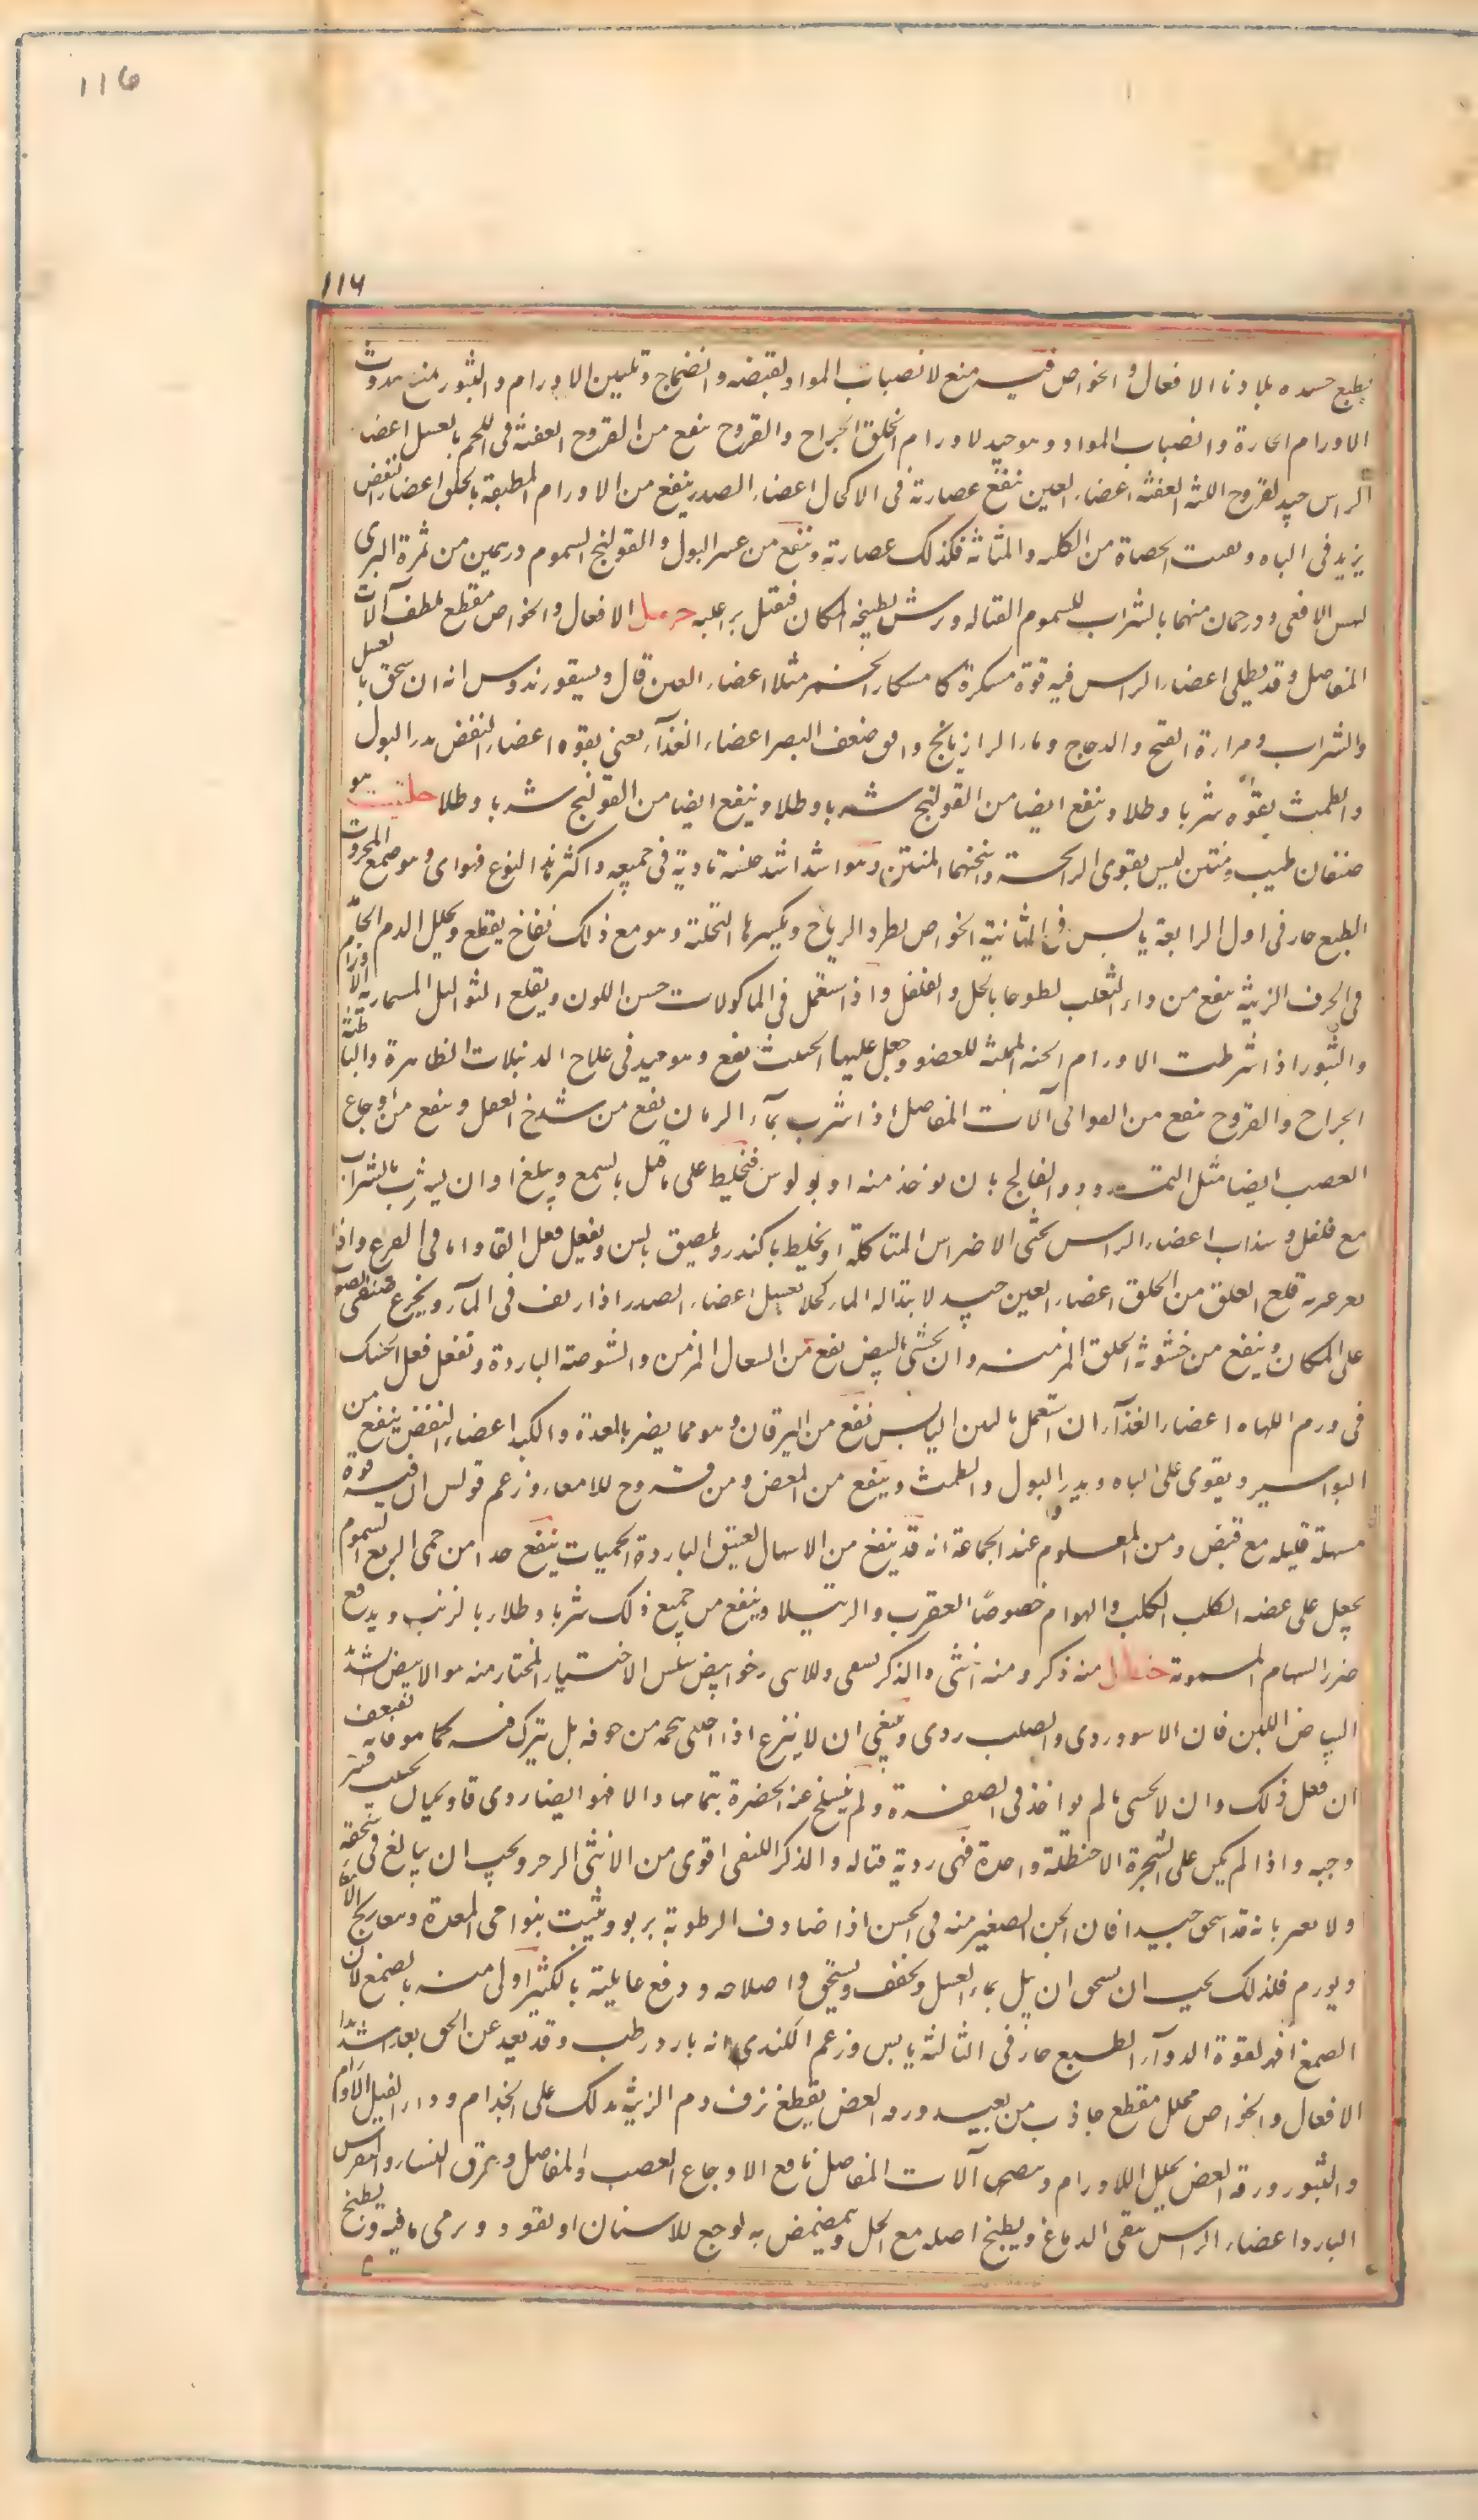 116
114
يطبع حسده بلادنا الافعال والخواص فيه منع لانصباب المواد بقبضه وانضجاج وتليين الاورام والبثور منع حدوث
الاورام الحارة وانصباب المواد وهو جيد لاورام الحلق الجراح والقروح ينفع من القروح العفنة فى اللحم بالعسل اعضا
الراس جيد لقروح اللثه العفنه اعضاء العين تنفع عصارته فى الاكحال اعضاء الصدر ينفع من الاورام المطبقة بالحلق اعضاء النفض
يزيد فى الباه وىفتت الحصاة من الكليه والمثانة فكذلك عصارته وتنفع من عسر البول والقولنج السموم درهمين من ثمرة البرى
لنهس الافعى ودرهمان منهما بالشراب للسموم القتاله ورش بطبيخه المكان فيقتل براغيه حرمل الافعال والخواص مقطع ملطف آلات
المفاصل وقد يطلى اعضاء الراس فيه قوة مسكرة كاسكار الخمر مثلا اعضاء العين قال ديسقوريدوس انه ان سحق بالعسل
والشراب ومرارة القبج والدجاج وماء الرازيانج وافق ضعف البصر اعضاء الغذآء يغثى بقوه اعضاء النفض يدر البول
والطمث بقوة شربا وطلا وينفع ايضا من القولنج شربا وطلا وينفع ايضا من القولنج شربا وطلا حلتيت هو
صنفان طيب ومنتن ليس بقوى الرائحة واسخنهما المنتن وهو اشد اشد حلته تاديته فى جميعه واكثر هذا النوع فهواى وهو صمغ المحروت
الطبع حار فى اول الرابعة يابس فى الثانية الخواص يطرد الرياح ويكسرها التحلته وهو مع ذلك نفاخ يقطع ويحلل الدم الجامد
فى الجوف الزينة ينفع من داء الثعلب لطوخا بالخل والفلفل واذا استعمل فى الماكولات حسن اللون ويقلع الثواليل المسمارية الاورام
والبثور اذا شرطت الاورام الخبيثة المميتة للعضو وجعل عليها الحلتيت نفع وهو جيد فى علاج الدبيلات الظاهرة والباطنة
الجراح والقروح ينفع من القوابى آلات المفاصل اذا شرب بمآء الرمان نفع من شدخ العضل وينفع من اوجاع
العصب ايضا مثل التمدد والفالج بان يوخذ منه اوبولوس فيخليط على ما قيل بالشمع ويبلغ او ان يشرب بالشراب
مع فلفل وسذاب اعضاء الراس يحشى الاضراس المتاكلة او يخليط بالكندر ويلصق بالسن ويفعل فعل الفاوانيا فى الصرع واذا
تغرغر به قلع العلق من الحلق اعضاء العين جيد لابتداء الماء كحلا بعسل اعضاء الصدر اذا اديف فى المآء ويجرع صفى الصوت
على المكان وينفع من خشونة الحلق المزمنه وان تحسى بالبيض نفع من السعال المزمن والشوصة الباردة وتفعل فعل الحنك
فى ورم اللهاه اعضاء الغذآء ان استعمل بالتين اليابس نفع من اليرقان وهو مما يضر بالمعدة والكبد اعضاء النفض ينفع من
البواسير ويقوى على الباه ويدر البول والطمث وينفع من المغص ومن قروح للامعاء وزعم قولس ان فيه قوة
مسهلة قليله مع قبض ومن المعلوم عند الجماعة انه قد ينفع من الاسهال العتيق الباردة الحميات ينفع جدا من حمى الربع السموم
يجعل على عضه الكلب الكلب والهوام خصوصًا العقرب والرتيلا وينفع من جميع ذلك شربا وطلاء بالزيت ويدفع
ضرر السهام المسمومة حنظل منه ذكر ومنه انثى والذكر ليفى والانثى رخو ابيض سلس الاختيار المختار منه هو الابيض الشديد
البياض اللين فان الاسود ردى والصلب ردى وينبغى ان لا ينزع اذا اجتنى شحمه من جوفه بل يترك فيه كما هو فانه يضعف
ان فعل ذلك وان لا يجنى ما لم يواخذ فى الصفرة ولم ينسلخ عنه الخضرة بتمامها والا فهو ايضا ردى قاويال يجلب قشر
وحبه واذا لم يكن على الشجرة الا حنظلة واحدة فهى ردية قتاله والذكر الليفى اقوى من الانثى الرخو ويجب ان يبالغ فى سحقه
ولا يغتر بانه قد انسحق جيدا فان الجزء الصغير منه فى الحس اذا صادف الرطوبة يربو ويثبت بنواحى المعدة وتعاريج الامعاء
ويورم فلذلك يجب ان يسحق ان يبل بماء العسل ويجفف ويسحق واصلاحه ودفع غايلته بالكثيرا اولى منه بالصمغ لان
الصمغ اقهر لقوة الدوآء الطبع حار فى الثالثة يابس وزعم الكندى انه بارد رطب وقد بعد عن الحق بعد اشديدا
الافعال والخواص محلل مقطع جاذب من بعيد ورقه الغض يقطع نزف دم الزينة يدلك على الجذام وداء الفيل الاورام
والبثور ورقه الغض يحلل الاورام وينضجها آلات المفاصل نافع الاوجاع العصب والمفاصل وعرق النساء والنقرس
البارد اعضاء الراس ينقى الدماغ ويطبخ اصله مع الخل ويتمضمض به لوجع للاسنان او يقور ويرمى ما فيه ويطبخ